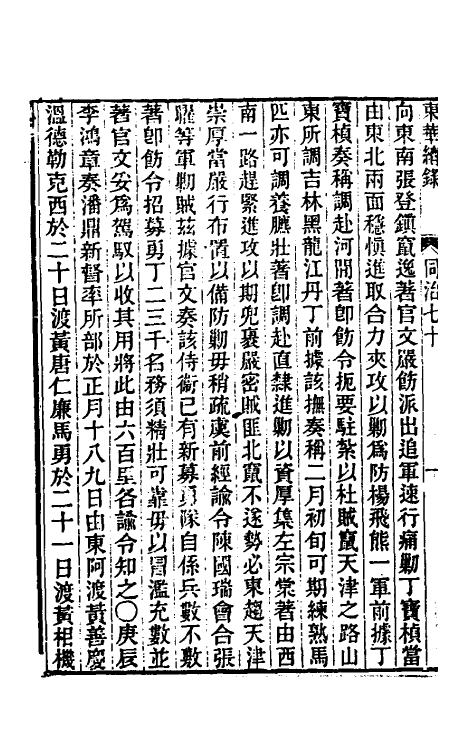 東華續錄 同治七十 一
向東南張登鎭竄逸著官文嚴飭派出追軍速行痛勦丁寶楨當
由東北兩面穩愼進取合力夾攻以勦爲防楊飛熊一軍前據丁
寶楨奏稱調赴河間著卽飭令扼要駐紮以杜賊竄天津之路山
東所調吉林黑龍江丹丁前據該撫奏稱二月初旬可期練熟馬
匹亦可調養臕壯著卽調赴直隸進勦以資厚集左宗棠著由西
南一路趕緊進攻以期兜裹嚴密賊匪北竄不遂勢必東趨天津
崇厚當嚴行布置以備防勦毋稍疏虞前經諭令陳國瑞會合張
曜等軍勦賊茲據官文奏該侍衞已有新募勇隊自係兵數不敷
著卽飭令招募勇丁二三千名務須精壯可靠毋以冒濫充數並
著官文妥爲駕馭以收其用將此由六百里各諭令知之〇庚辰
李鴻章奏潘鼎新督率所部於正月十八九日由東阿渡黃善慶
溫德勒克西於二十日渡黃唐仁廉馬勇於二十一日渡黃相機